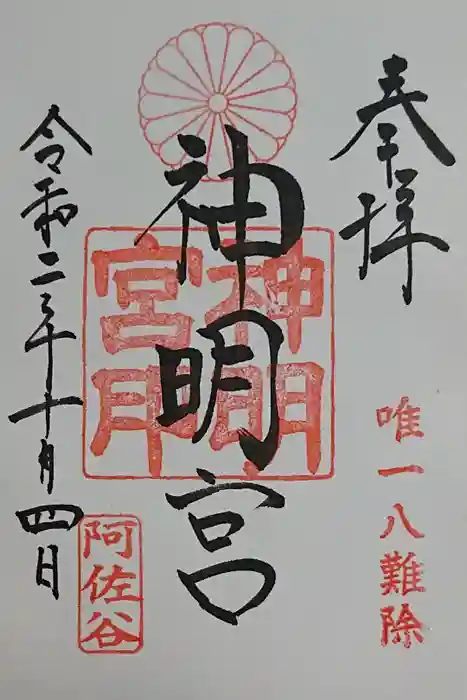 奉拝
唯一八難除
神明宮
神明宮
阿佐谷
令和二年十月四日